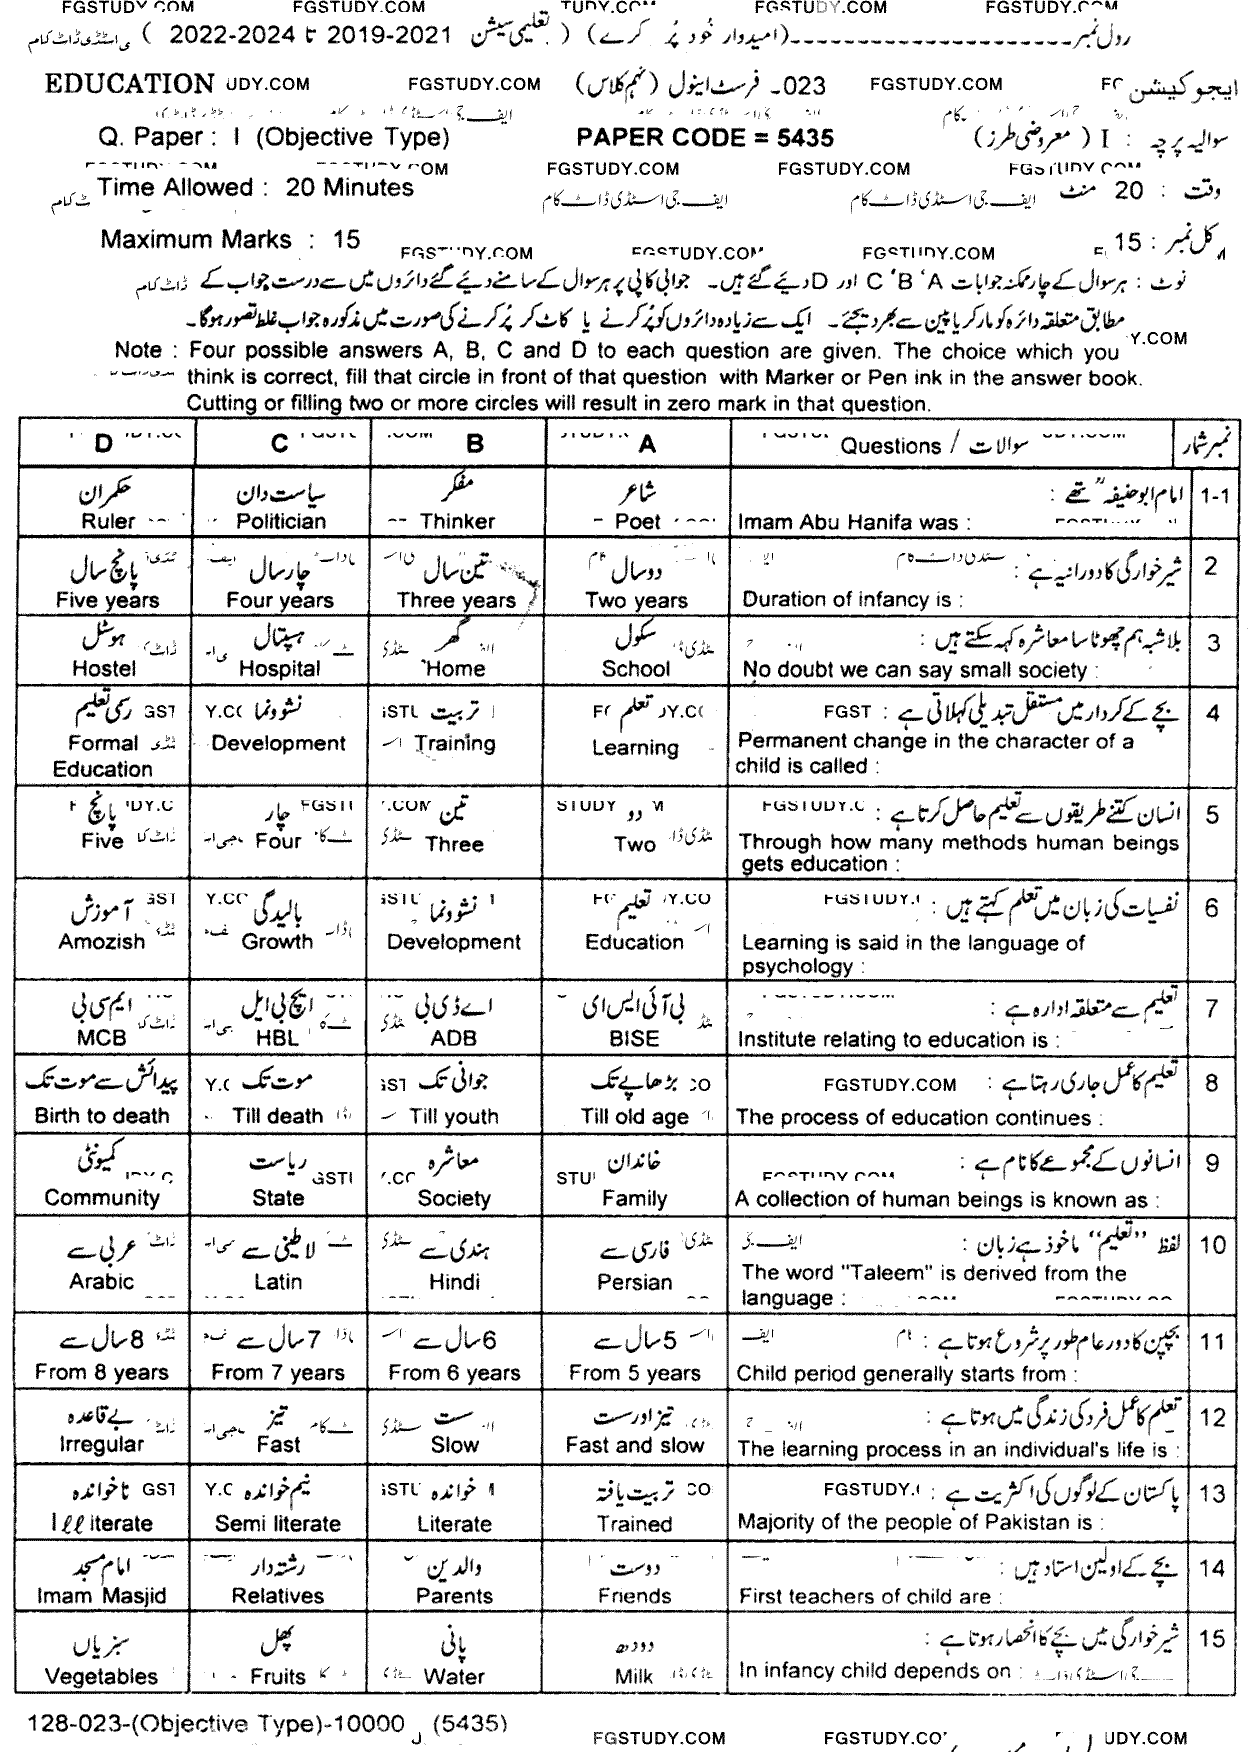 FGSTUDY.COM FGSTUDY.COM TUDY.CO FGSTUDY.COM FGSTUDY.COM
رول نمبر---------------------(امیدوار خود پُر کرے) ( تعلیمی سیشن 2021-2019 تا 2024-2022 )
EDUCATION UDY.COM FGSTUDY.COM 023۔ فرسٹ اینول (نہم کلاس) FGSTUDY.COM ایجوکیشن
Q. Paper : I (Objective Type) PAPER CODE = 5435 سوالیہ پرچہ : I ( معروضی طرز)
FGSTUDY.COM FGSTUDY.COM
Time Allowed : 20 Minutes ایف جی اسٹڈی ڈاٹ کام ایف جی اسٹڈی ڈاٹ کام وقت : 20 منٹ
Maximum Marks : 15 FGSTUDY.COM کل نمبر : 15
نوٹ : ہر سوال کے چار ممکنہ جوابات A ' B ' C اور D دیئے گئے ہیں۔ جوابی کاپی پر ہر سوال کے سامنے دیئے گئے دائروں میں سے درست جواب کے
مطابق متعلقہ دائرہ کو مارکر یا پین سے بھر دیجئے۔ ایک سے زیادہ دائروں کو پُر کرنے یا کاٹ کر پُر کرنے کی صورت میں مذکورہ جواب غلط تصور ہوگا۔
Note : Four possible answers A, B, C and D to each question are given. The choice which you
think is correct, fill that circle in front of that question with Marker or Pen ink in the answer book.
Cutting or filling two or more circles will result in zero mark in that question.
D C B A Questions / سوالات نمبر شمار
حکمران سیاست دان مفکر شاعر امام ابوحنیفہؒ تھے : 1-1
Ruler Politician Thinker Poet Imam Abu Hanifa was :
پانچ سال چار سال تین سال دو سال شیرخوارگی کا دورانیہ ہے : 2
Five years Four years Three years Two years Duration of infancy is :
ہوسٹل ہسپتال گھر سکول بلاشبہ ہم چھوٹا سا معاشرہ کہہ سکتے ہیں : 3
Hostel Hospital Home School No doubt we can say small society :
رسمی تعلیم نشوونما تربیت تعلم بچے کے کردار میں مستقل تبدیلی کہلاتی ہے : 4
Formal Development Training Learning Permanent change in the character of a
Education child is called :
پانچ چار تین دو انسان کتنے طریقوں سے تعلیم حاصل کرتا ہے : 5
Five Four Three Two Through how many methods human beings
gets education :
آموزش بالیدگی نشوونما تعلیم نفسیات کی زبان میں تعلم کہتے ہیں : 6
Amozish Growth Development Education Learning is said in the language of
psychology :
ایم سی بی ایچ بی ایل اے ڈی بی بی آئی ایس ای تعلیم سے متعلقہ ادارہ ہے : 7
MCB HBL ADB BISE Institute relating to education is :
پیدائش سے موت تک موت تک جوانی تک بڑھاپے تک FGSTUDY.COM تعلیم کا عمل جاری رہتا ہے : 8
Birth to death Till death Till youth Till old age The process of education continues :
کمیونٹی ریاست معاشرہ خاندان انسانوں کے مجموعے کا نام ہے : 9
Community State Society Family A collection of human beings is known as :
عربی سے لاطینی سے ہندی سے فارسی سے لفظ "تعلیم" ماخوذ ہے زبان : 10
Arabic Latin Hindi Persian The word "Taleem" is derived from the
language :
8 سال سے 7 سال سے 6 سال سے 5 سال سے بچپن کا دور عام طور پر شروع ہوتا ہے : 11
From 8 years From 7 years From 6 years From 5 years Child period generally starts from :
بے قاعدہ تیز ست تیز اور ست تعلم کا عمل فرد کی زندگی میں ہوتا ہے : 12
Irregular Fast Slow Fast and slow The learning process in an individual's life is :
ناخواندہ نیم خواندہ خواندہ تربیت یافتہ پاکستان کے لوگوں کی اکثریت ہے : 13
Illiterate Semi literate Literate Trained Majority of the people of Pakistan is :
امام مسجد رشتہ دار والدین دوست بچے کے اولین استاد ہیں : 14
Imam Masjid Relatives Parents Friends First teachers of child are :
سبزیاں پھل پانی دودھ شیرخوارگی میں بچے کا انحصار ہوتا ہے : 15
Vegetables Fruits Water Milk In infancy child depends on :
128-023-(Objective Type)-10000 (5435)
FGSTUDY.COM FGSTUDY.CO UDY.COM